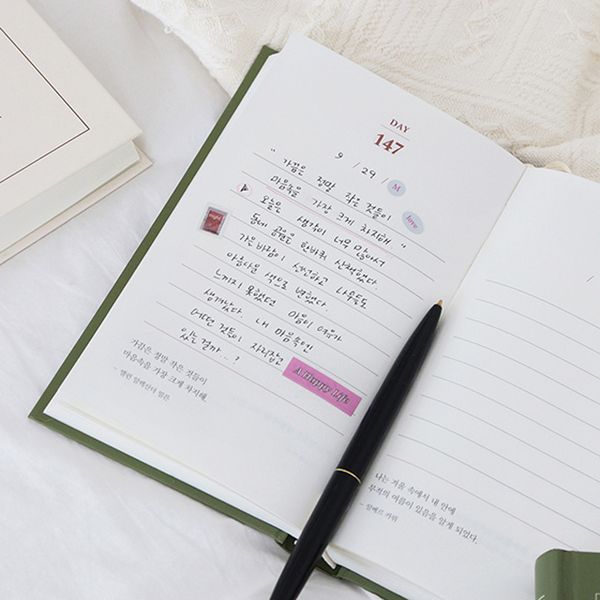 DAY
147
9 / 29 / M
"가끔은 정말 작은 것들이
마음속을 가장 크게 차지해"
love
오늘은 생각이 너무 많아서
동네 공원을 한바퀴 산책했다.
night
가을바람이 선선하고 나무들도
아름다운 색으로 변했다.
느끼지 못했던 마음의 여유가
생겨났다. 내 마음속엔
어떤 것들이 자리잡고
있는 걸까..?
A Happy Life
가끔은 정말 작은 것들이
마음속을 가장 크게 차지해.
나는 겨울 속에서 내 안에
부적의 여름이 있음을 알게 되었다.
- 알베르 카뮈